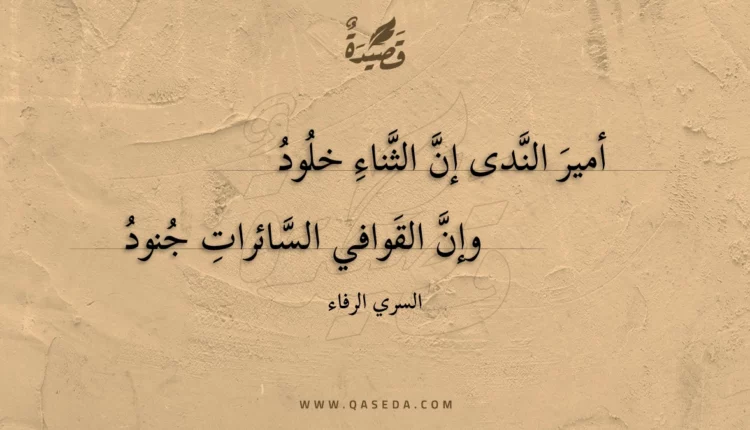 قَصِيدَةٌ
أميرَ النَّدى إنَّ الثَّناءِ خلُودُ
وإنَّ القَوافي السَّائراتِ جُنودُ
السري الرفاء
WWW.QASEDA.COM